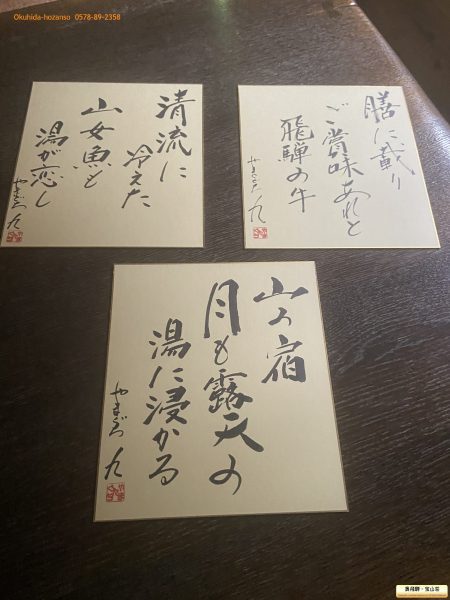 Okuhida-hozanso 0578-89-2358
清流に
冷えた
山女魚と
湯が恋し
膳に載り
ご賞味あれと
飛騨の牛
山の宿
月も露天の
湯に浸かる
奥飛騨・宝山荘